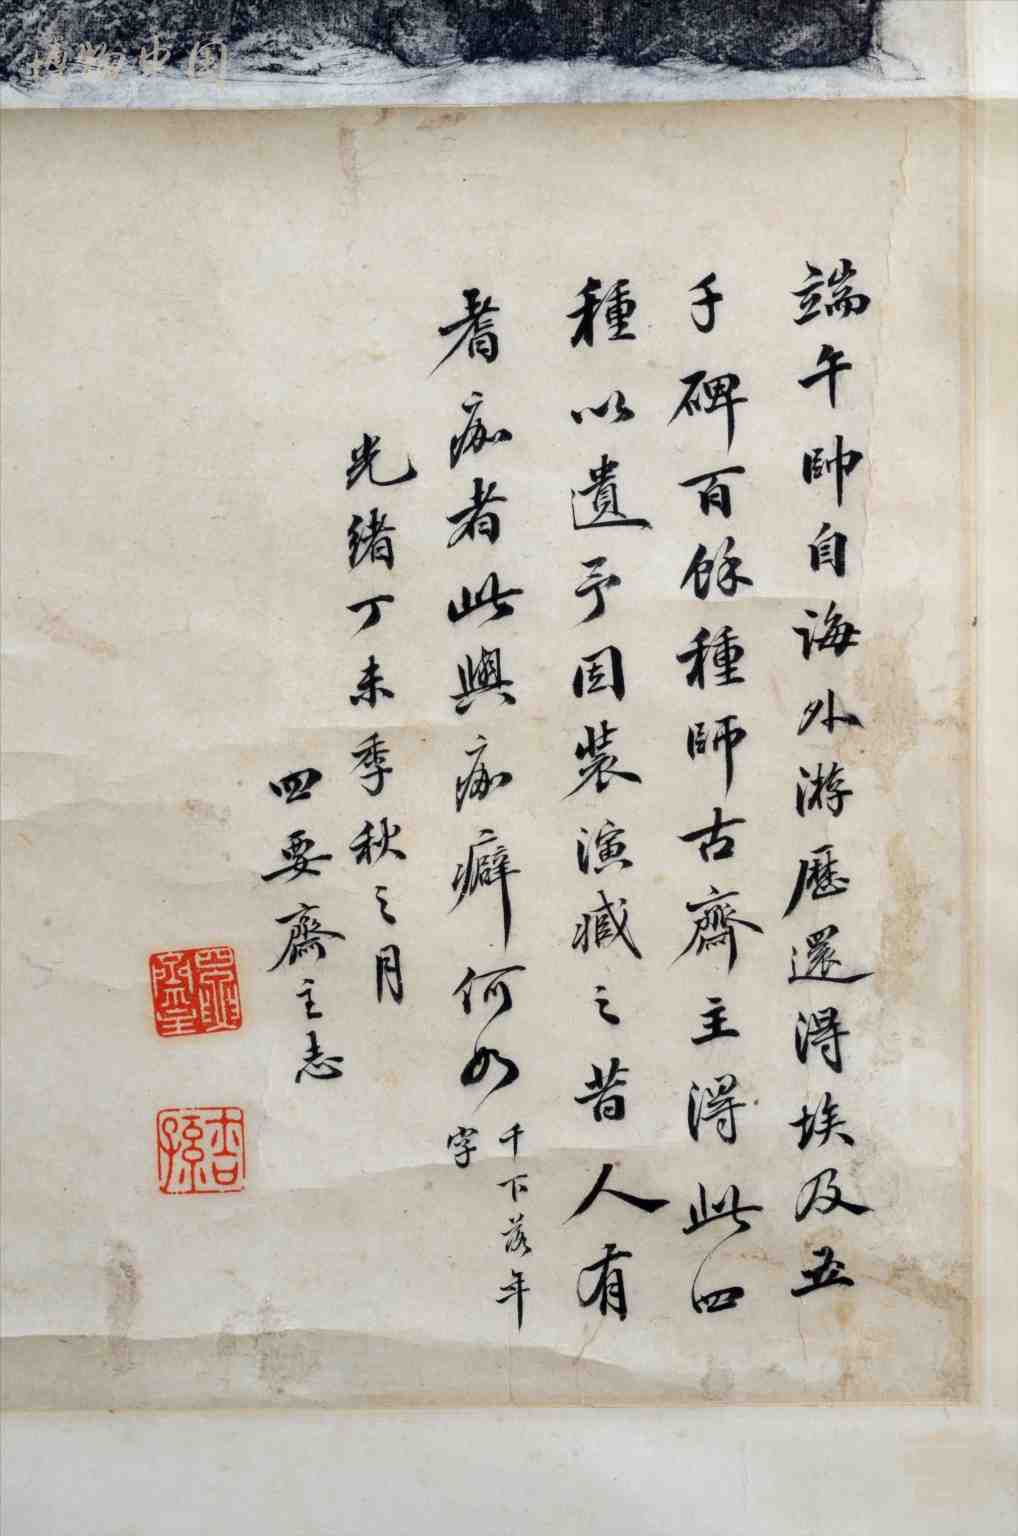 端午帥自海外游歷還得埃及五
千碑百餘種師古齋主得此四
種以遺予因裝演藏之昔人有
耆痂者此與痂癖何如 千下落年
字
光緒丁未季秋之月
四要齋主志
杏孫
博物中国